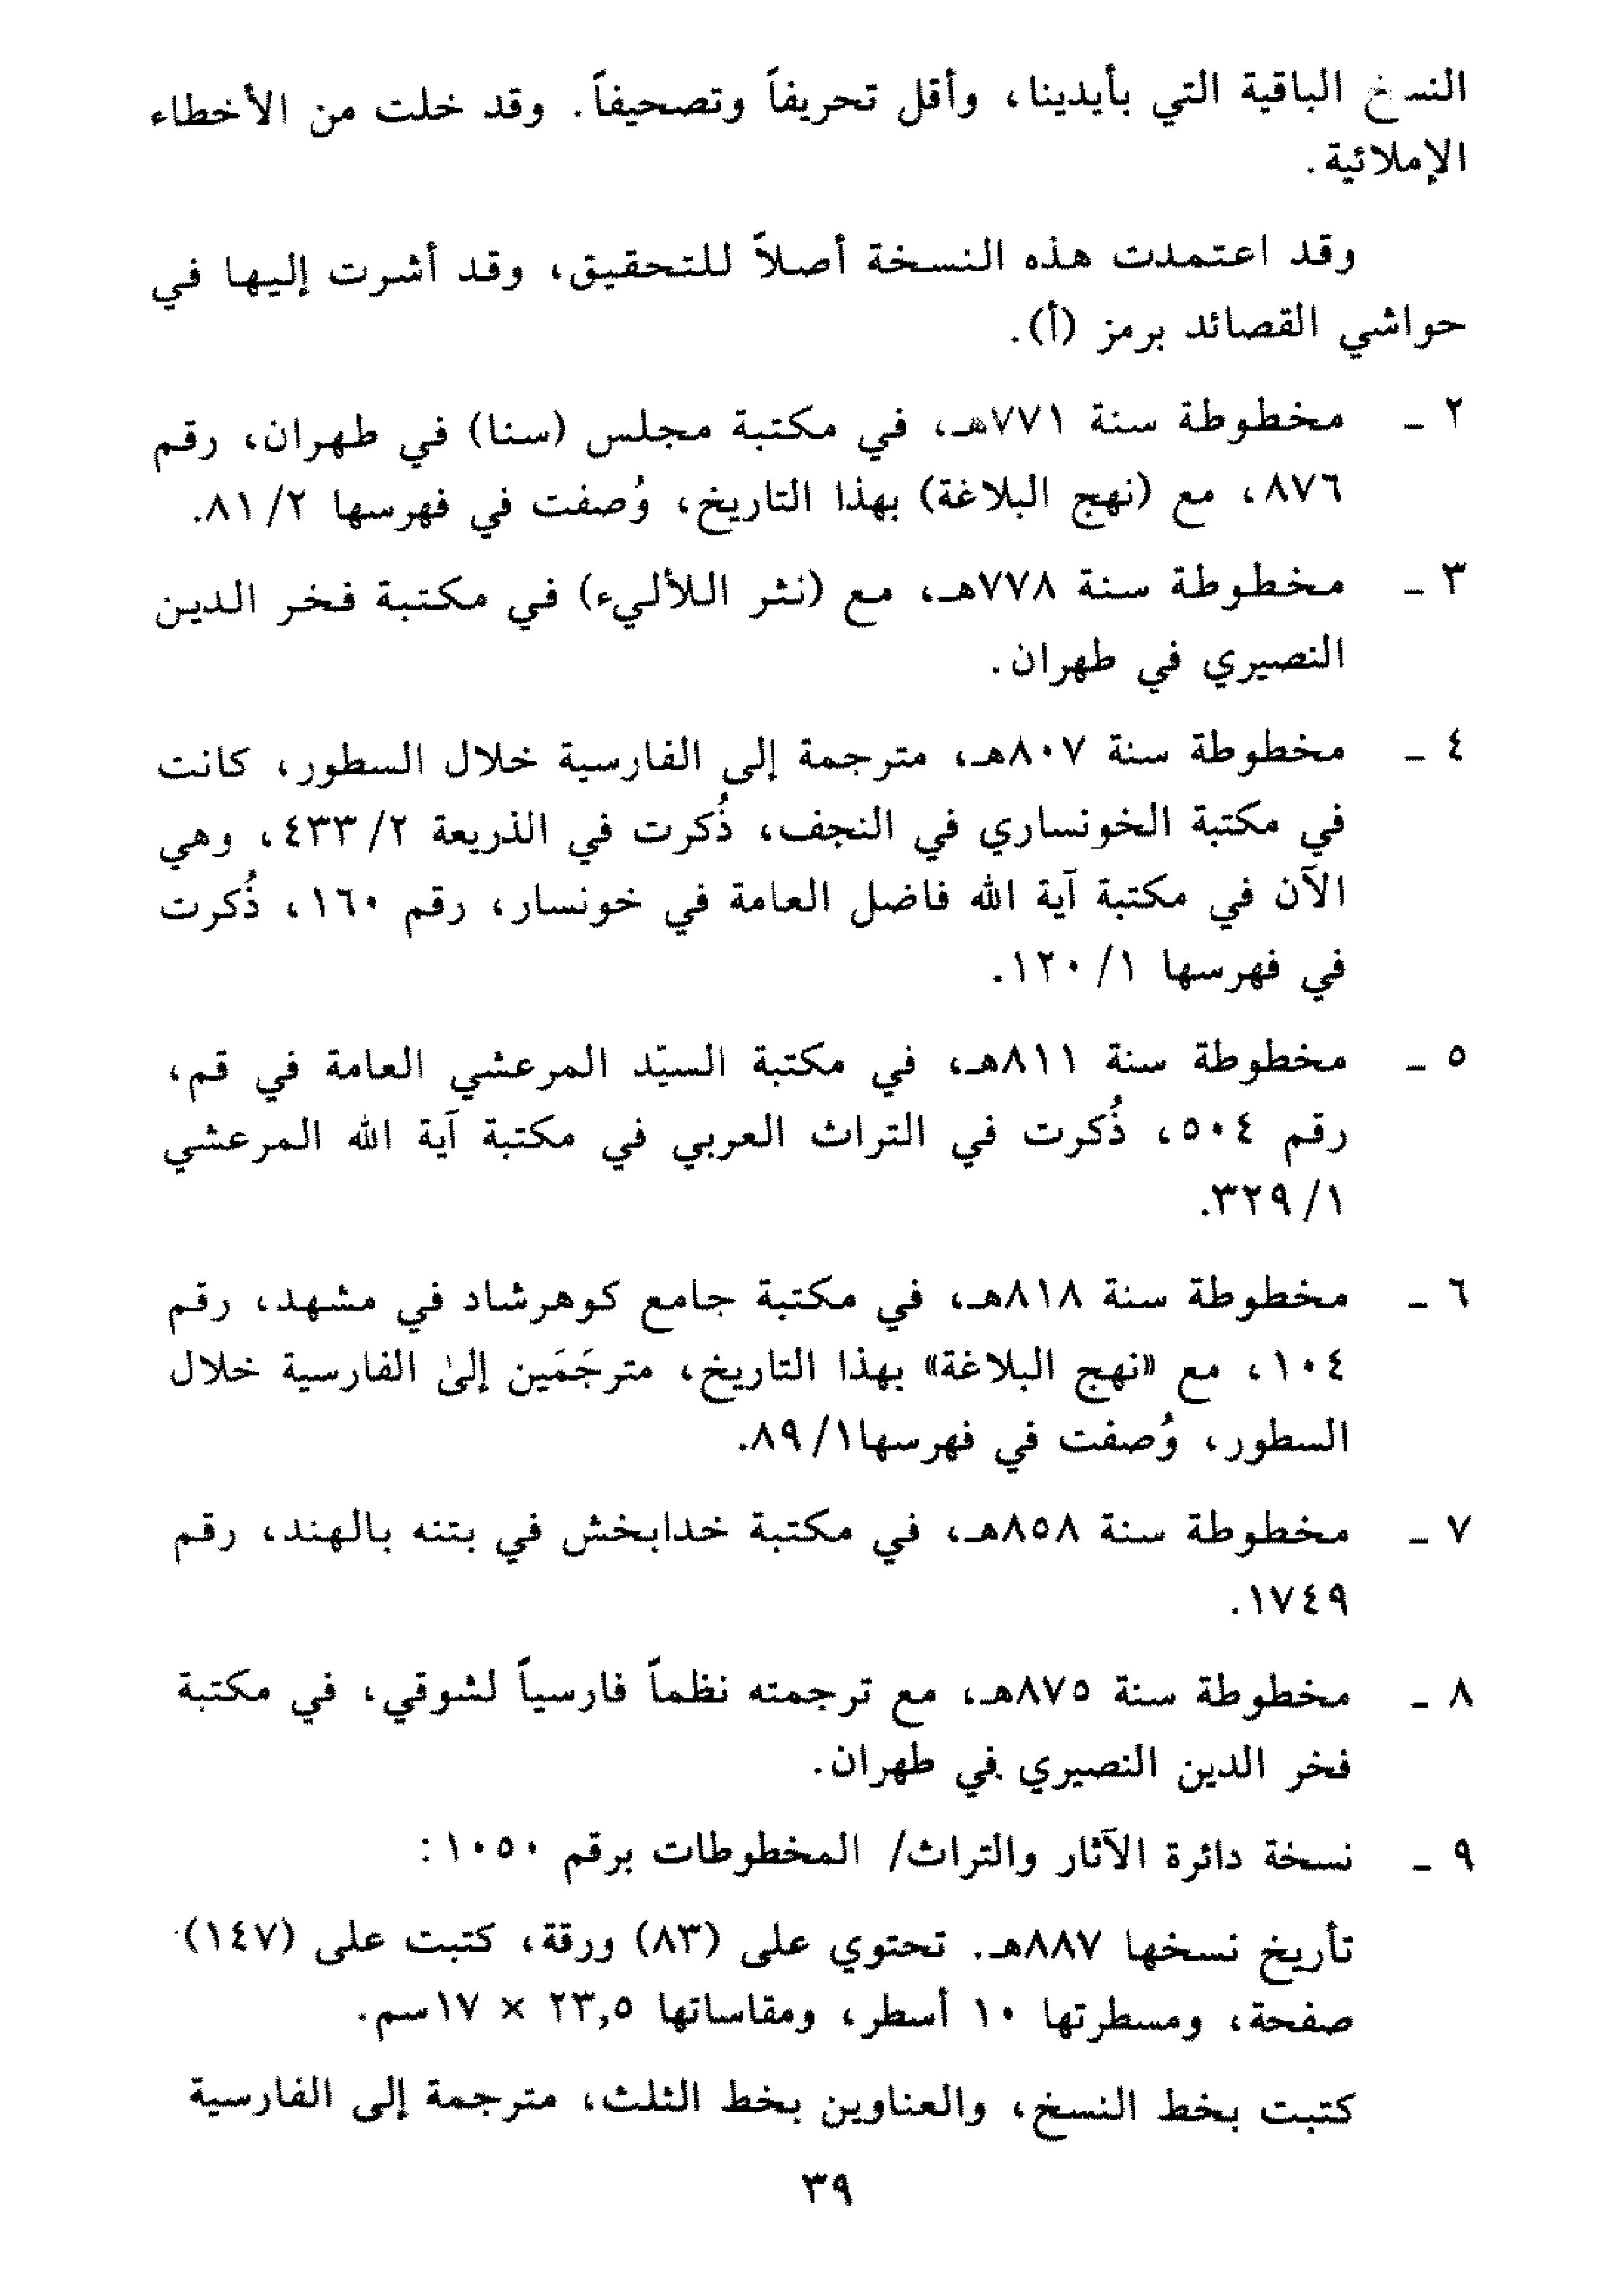 النسخ الباقية التي بأيدينا، وأقل تحريفاً وتصحيفاً. وقد خلت من الأخطاء
الإملائية.
وقد اعتمدت هذه النسخة أصلاً للتحقيق، وقد أشرت إليها في
حواشي القصائد برمز (أ).
٢ ـ مخطوطة سنة ٧٧١هـ، في مكتبة مجلس (سنا) في طهران، رقم
٨٧٦، مع (نهج البلاغة) بهذا التاريخ، وُصفت في فهرسها ٢/ ٨١.
٣ ـ مخطوطة سنة ٧٧٨هـ، مع (نثر اللأليء) في مكتبة فخر الدين
النصيري في طهران.
٤ ـ مخطوطة سنة ٨٠٧هـ، مترجمة إلى الفارسية خلال السطور، كانت
في مكتبة الخونساري في النجف، ذُكرت في الذريعة ٢/ ٤٣٣، وهي
الآن في مكتبة آية الله فاضل العامة في خونسار، رقم ١٦٠، ذُكرت
في فهرسها ١/ ١٢٠.
٥ ـ مخطوطة سنة ٨١١هـ، في مكتبة السيّد المرعشي العامة في قم،
رقم ٥٠٤، ذُكرت في التراث العربي في مكتبة آية الله المرعشي
١/ ٣٢٩.
٦ ـ مخطوطة سنة ٨١٨هـ، في مكتبة جامع كوهرشاد في مشهد، رقم
١٠٤، مع «نهج البلاغة» بهذا التاريخ، مترجَمَين إلىٰ الفارسية خلال
السطور، وُصفت في فهرسها١/ ٨٩.
٧ ـ مخطوطة سنة ٨٥٨هـ، في مكتبة خدابخش في بتنه بالهند، رقم
١٧٤٩.
٨ ـ مخطوطة سنة ٨٧٥هـ، مع ترجمته نظماً فارسياً لشوقي، في مكتبة
فخر الدين النصيري في طهران.
٩ ـ نسخة دائرة الآثار والتراث/ المخطوطات برقم ١٠٥٠:
تأريخ نسخها ٨٨٧هـ. تحتوي على (٨٣) ورقة، كتبت على (١٤٧)
صفحة، ومسطرتها ١٠ أسطر، ومقاساتها ٢٣,٥ × ١٧سم.
كتبت بخط النسخ، والعناوين بخط الثلث، مترجمة إلى الفارسية
٣٩